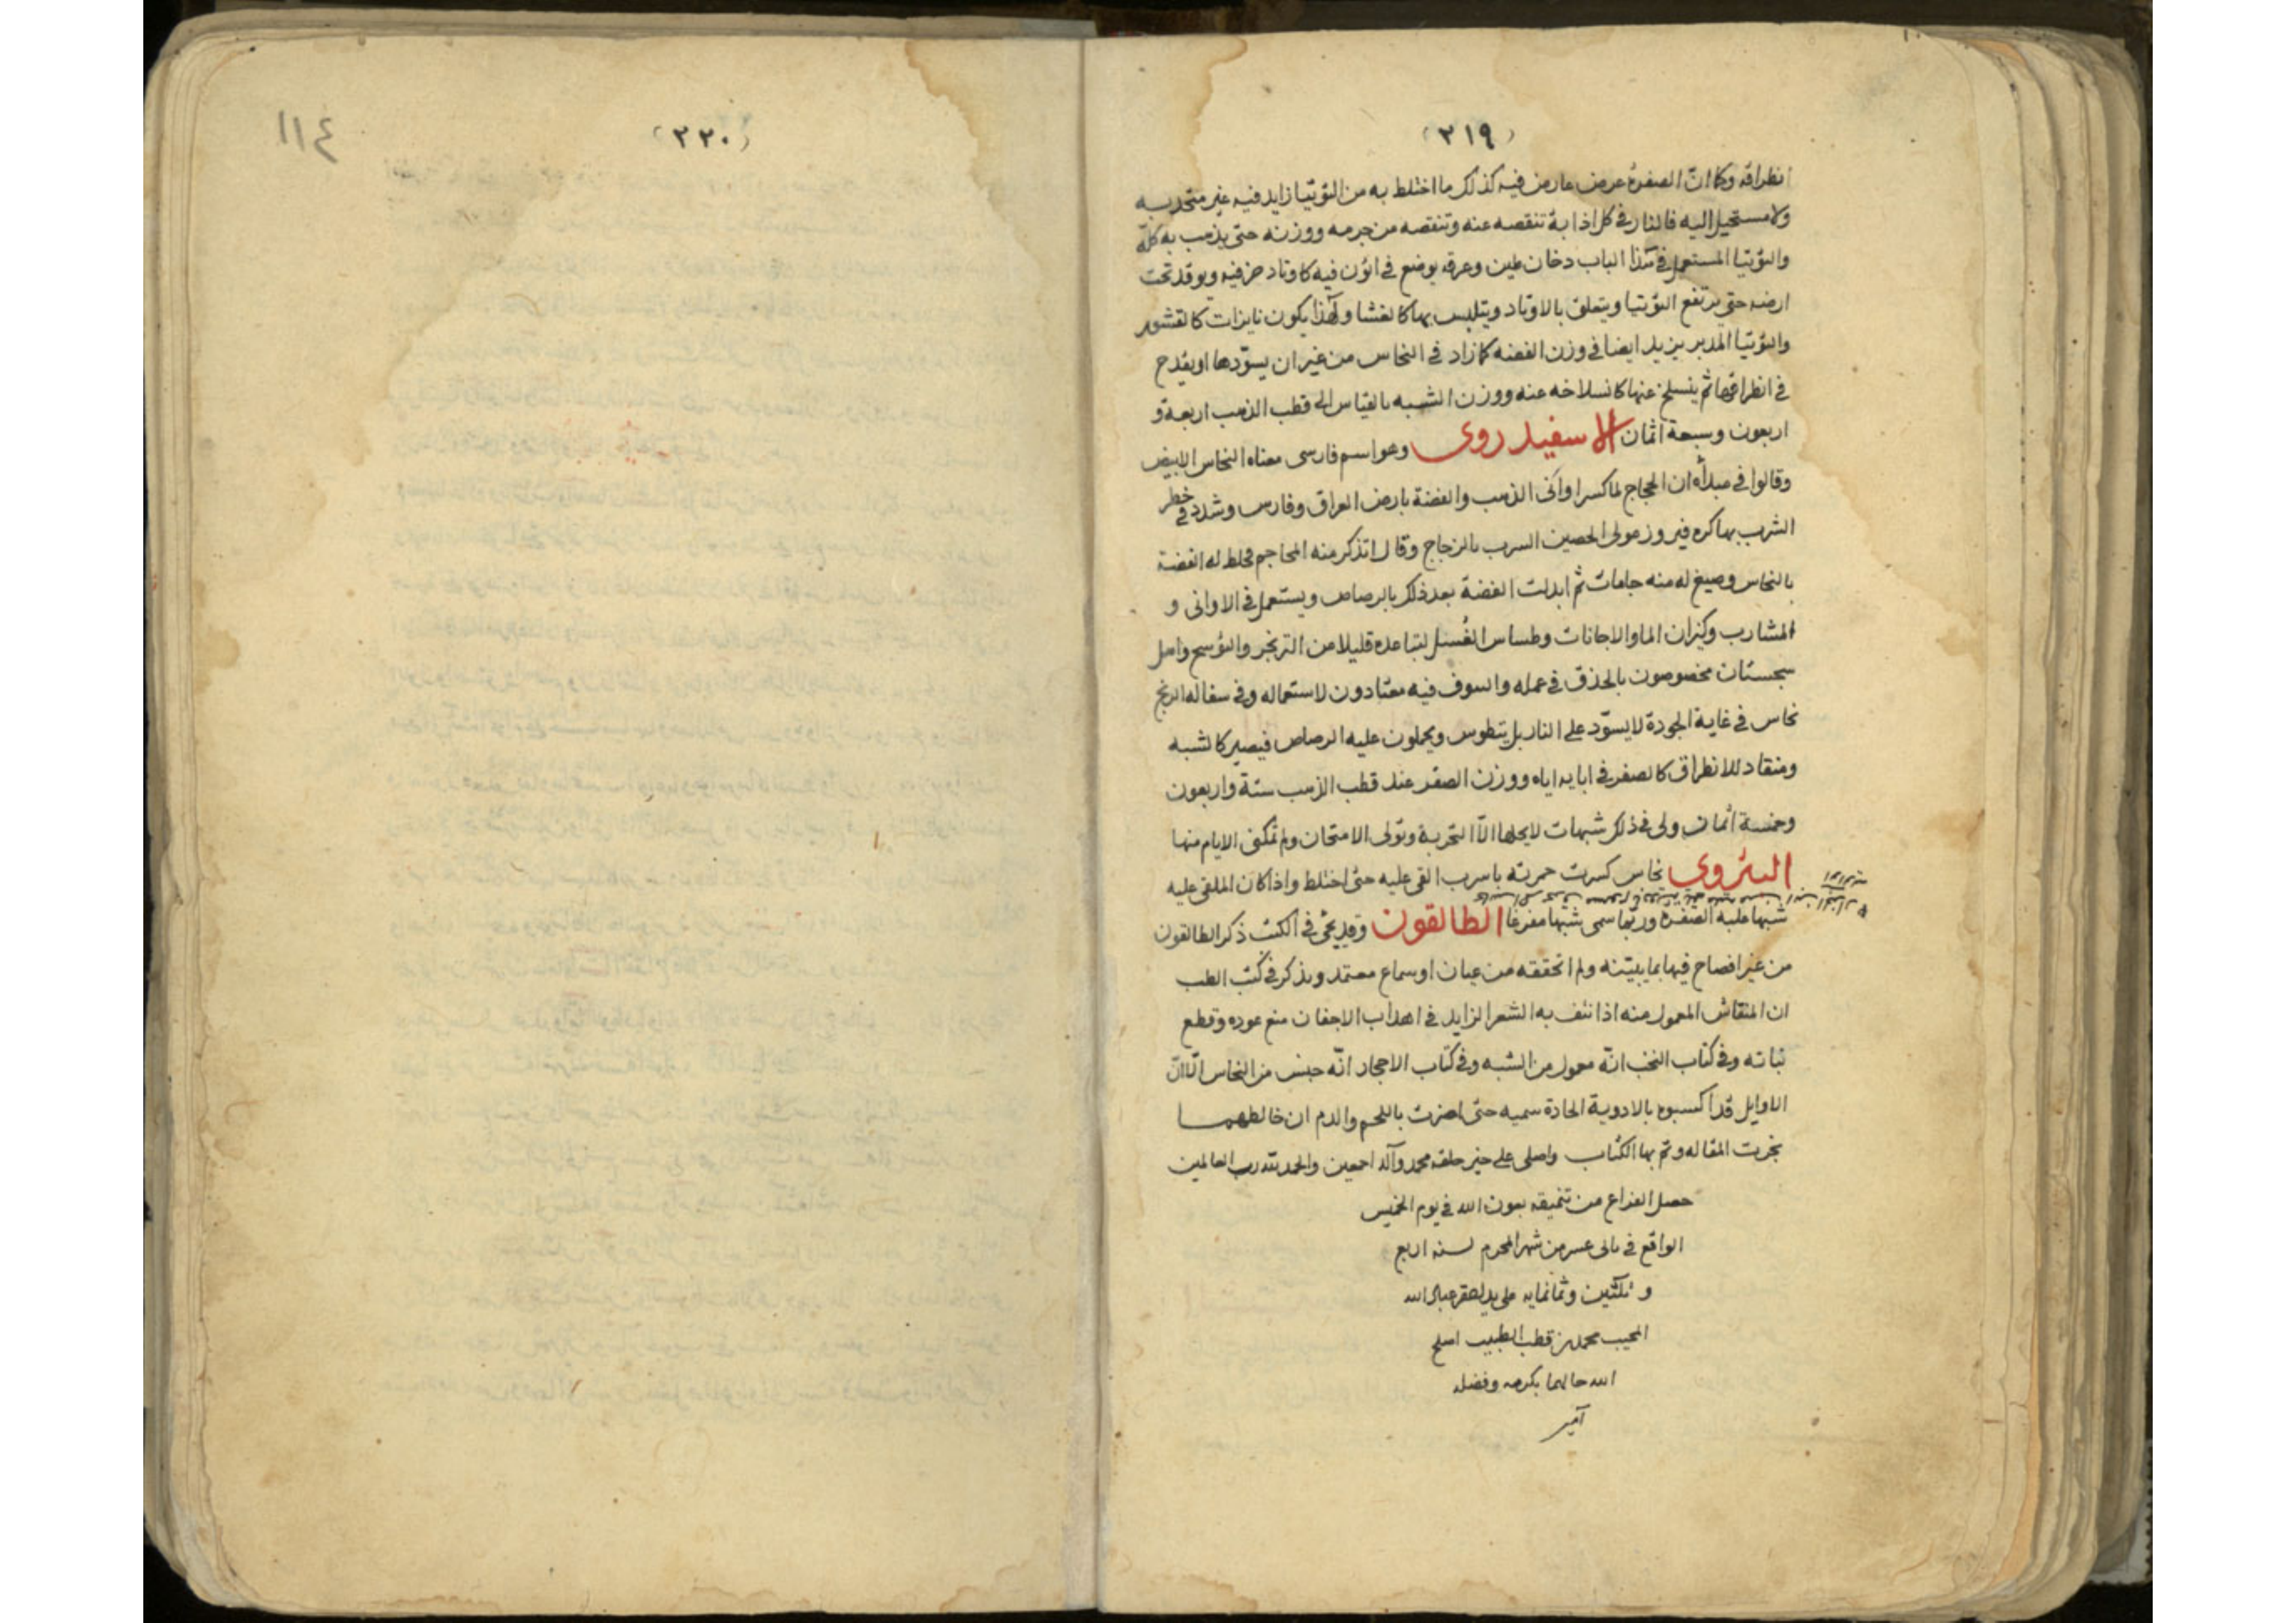 (٢١٩)
انطراقه وكما انّ الصفرة عرض عارض فيه كذلك ما اختلط به من التوتيا زايد فيه غير متحد به
ولا مستحيل اليه فالنار في كل اذابة تنقصه عنه وتنقصه من جرمه ووزنه حتى يذهب به كلّه
والتوتيا المستعمل في هذا الباب دخان طين وعرقه يوضع في اتون فيه كاوتاد خزفية ويوقد تحت
ارضه حتى يرتفع التوتيا ويتعلق بالاوتاد ويتلبس بها كالغشا ولهذا يكون نايزات كالقشور
والتوتيا المدبر يزيد ايضا في وزن الفضه كما زاد في النحاس من غير ان يسوّدها او يقدح
في انطراقها ثم ينسلخ عنها كانسلاخه عنه ووزن الشبه بالقياس الى قطب الذهب اربعة و
اربعون وسبعة اثمان الاسفيدروى وهو اسم فارسى معناه النحاس الابيض
وقالوا في مبدأه ان الحجاج لما كسر اواني الذهب والفضة بارض العراق وفارس وشدد في خطر
الشرب بها كره فيروز مولى الحصين الشرب بالزجاج وقال اتذكر منه المحاجم فخلط له الفضة
بالنحاس وصيغ له منه جامات ثم ابدلت الفضة بعد ذلك بالرصاص ويستعمل في الاوانى و
المشارب وكيزان الما والاجانات وطساس الغُسل لتباعده قليلا من التزنجر والتوسخ واهل
سجستان مخصوصون بالحذق في عمله والسوف فيه معتادون لاستعماله وفي سفاله الزنج
نحاس في غاية الجودة لا يسوّد على النار بل يتطوس ويحملون عليه الرصاص فيصير كالشبه
ومنقاد للانطراق كالصفر في ابايه اياه ووزن الصفر عند قطب الذهب ستة واربعون
وخمسة اثمان ولى في ذلك شبهات لا يحلها الّا التجربة وتولى الامتحان ولم تمكن الايام منها
البتروى نحاس كسرت حمرته باسرب القى عليه حتى اختلط واذا كان الملقى عليه
شبها علبه الصفرة وربّما سمى شبها مفرغا الطالقون وقد يجئ في الكتب ذكر الطالقون
من غير افصاح فيها بما يبيّنه ولم اتحققه من عيان او سماع معتمد ويذكر في كتب الطب
ان المنقاش المعمول منه اذا نتف به الشعر الزايد في اهداب الاجفان منع عوده وقطع
نباته وفي كتاب النخب انّه معمول من الشبه وفي كتاب الاحجار انّه جنس من النحاس الّا انّ
الاوايل قد اكسبوه بالادوية الحادة سميه حتى اضرت باللحم والدم ان خالطهما
نجزت المقاله وتم بها الكتاب واصلى على خير خلقه محمد وآله اجمعين والحمد لله رب العالمين
حصل الفراغ من تنميقه بعون الله في يوم الخميس
الواقع في ثانى عسر من شهر المحرم لسنه اربع
وثلثين وثمانمايه على يد احقر عباد الله
المجيب محمد بن قطب الطبيب اصلح
الله حالهما بكرمه وفضله
آمين
(٢٢٠)
١١٤